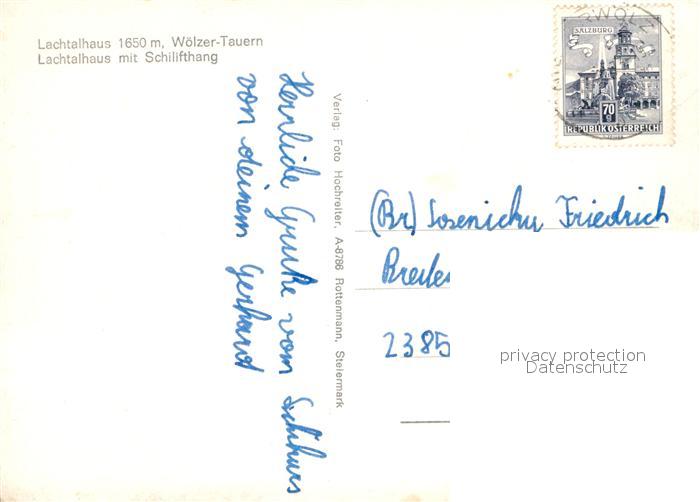 Lachtalhaus 1650 m, Wölzer-Tauern
Lachtalhaus mit Schilifthang
Herzliche Grüße vom Schikurs
von deinem Gerhard
Verlag: Foto Hochreiter, A-8786 Rottenmann, Steiermark
SALZBURG
70
g
REPUBLIK ÖSTERREICH
(Br) Friedrich
2385
privacy protection
Datenschutz